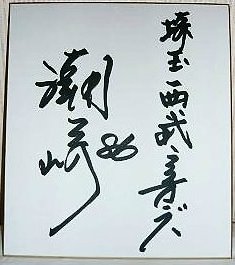 埼玉西武ライオンズ
潮崎 86